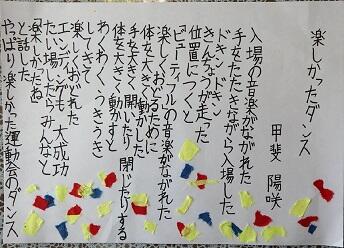 楽しかったダンス
甲斐 陽咲
入場の音楽がながれた
手をたたきながら入場した
ドキンドキン
きんちょうが走った
位置につくと
ビューティフルの音楽がながれた
楽しくおどるために
体を大きく動かした
手を大きく開いたり閉じたりする
体を大きく動かすと
わくわくうきうき
してきて
楽しくおどれた
エンディングも大成功
たい場したらみんなと
楽しかだね
と話した
やっぱり楽しかった運動会のダンス